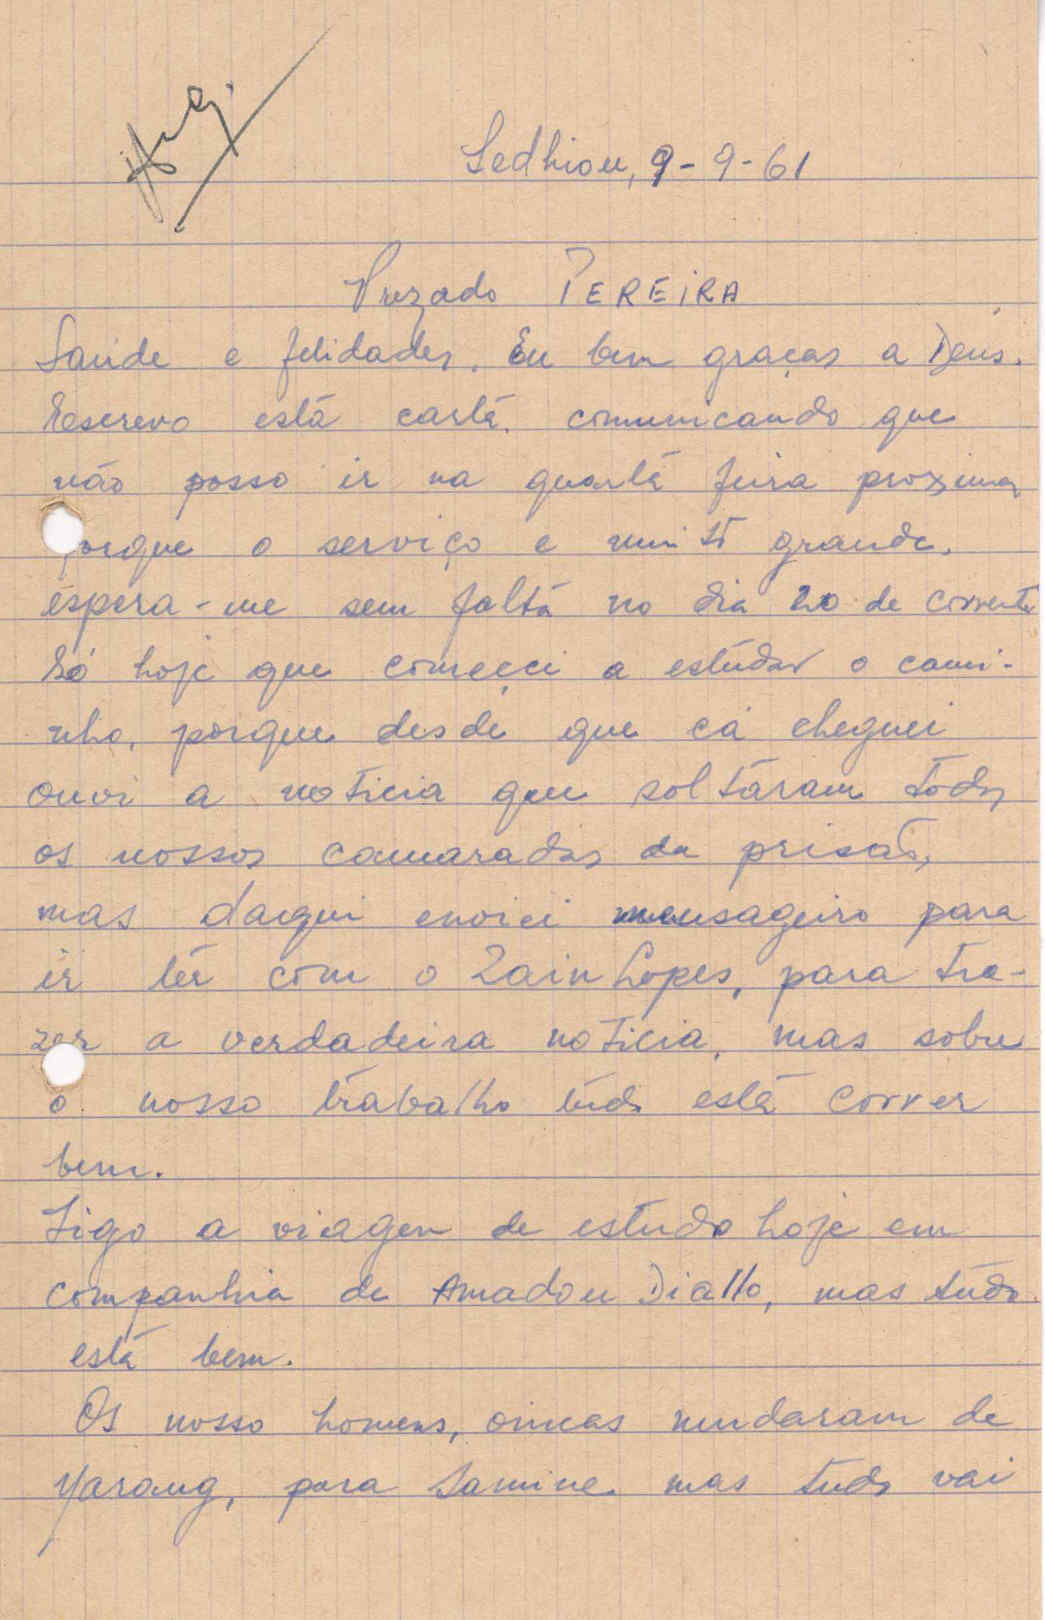 Sedhiou, 9-9-61
Prezado PEREIRA
Saúde e felidades. Eu bem graças a Deus.
Escrevo está cartá. comunicando que
não posso ir na quartá feira proxima
porque o serviço e muitó grande.
éspera-me sem faltá no dia 20 de corrente
Só hoje que comecei a estúdar o cami-
nho, porque desde que cá cheguei
ouvi a noticia que soltáram todos
os nossos camaradas da prisaõ,
mas daqui enviei mensageiro para
ir tér com o Zain Lopes, para tra-
zer a verdadeira noticia, mas sobre
o nosso trábalho túdo está correr
bem.
Sigo a viagem de estudo hoje em
companhia de Amadou Diallo, mas túdo
está bem.
Os nosso homens, mudaram de
Yarang, para Samine mas tudo vai